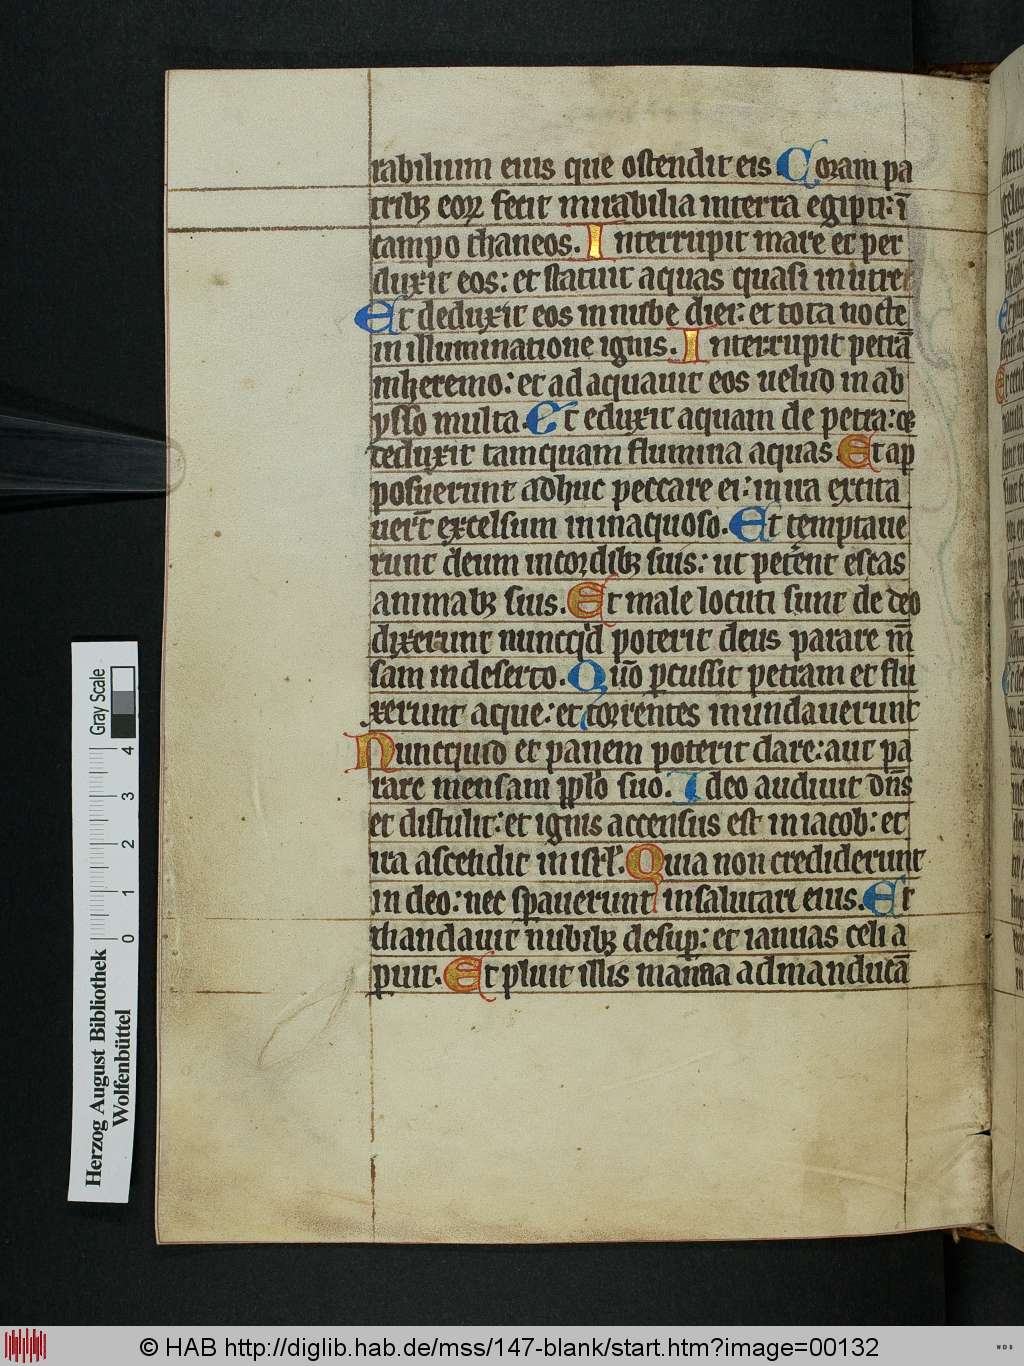 rabilium eius que ostendit eis Coram pa
tribꝫ eoꝝ fecit mirabilia in terra egipti: ī
campo thaneos. Interrupit mare et per
duxit eos: et statuit aquas quasi in utre
Et deduxit eos in nube diei: et tota nocte
in illuminatione ignis. Interrupit petrā
in heremo: et ad aquauit eos uelud in ab
ysso multa. Et eduxit aquam de petra: et
deduxit tamquam flumina aquas. Et ap
posuerunt adhuc peccare ei: in ira excita
uert̄ excelsum in inaquoso. Et temptaue
runt deum in cordibꝫ suis: ut peterent escas
animabꝫ suis. Et male locuti sunt de deo
dixerunt nuncqͥd poterit deus parare m̄
sam in deserto. Quō ꝑcussit petram et flu
xerunt aque: et torrentes inundauerunt
Nuncquid et panem poterit dare: aut pa
rare mensam pplo suo. Ideo audiuit dn̄s
et distulit: et ignis accensus est in iacob: et
ira ascendit in isrl̄. Quia non crediderunt
in deo: nec sperauerunt in salutari eius. Et
mandauit nubibꝫ desuꝑ: et ianuas celi a
peruit. Et pluit illis manna ad manducā
Herzog August Bibliothek
Wolfenbüttel
0 1 2 3 4
Gray Scale
© HAB http://diglib.hab.de/mss/147-blank/start.htm?image=00132